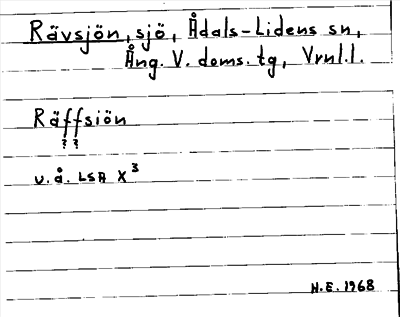 Rävsjön, sjö, Ådals-Lidens sn,
Ång. V. doms. tg, Vrnl.l.
Räffsiön
? ?
u.å. LSA X³
H.E. 1968